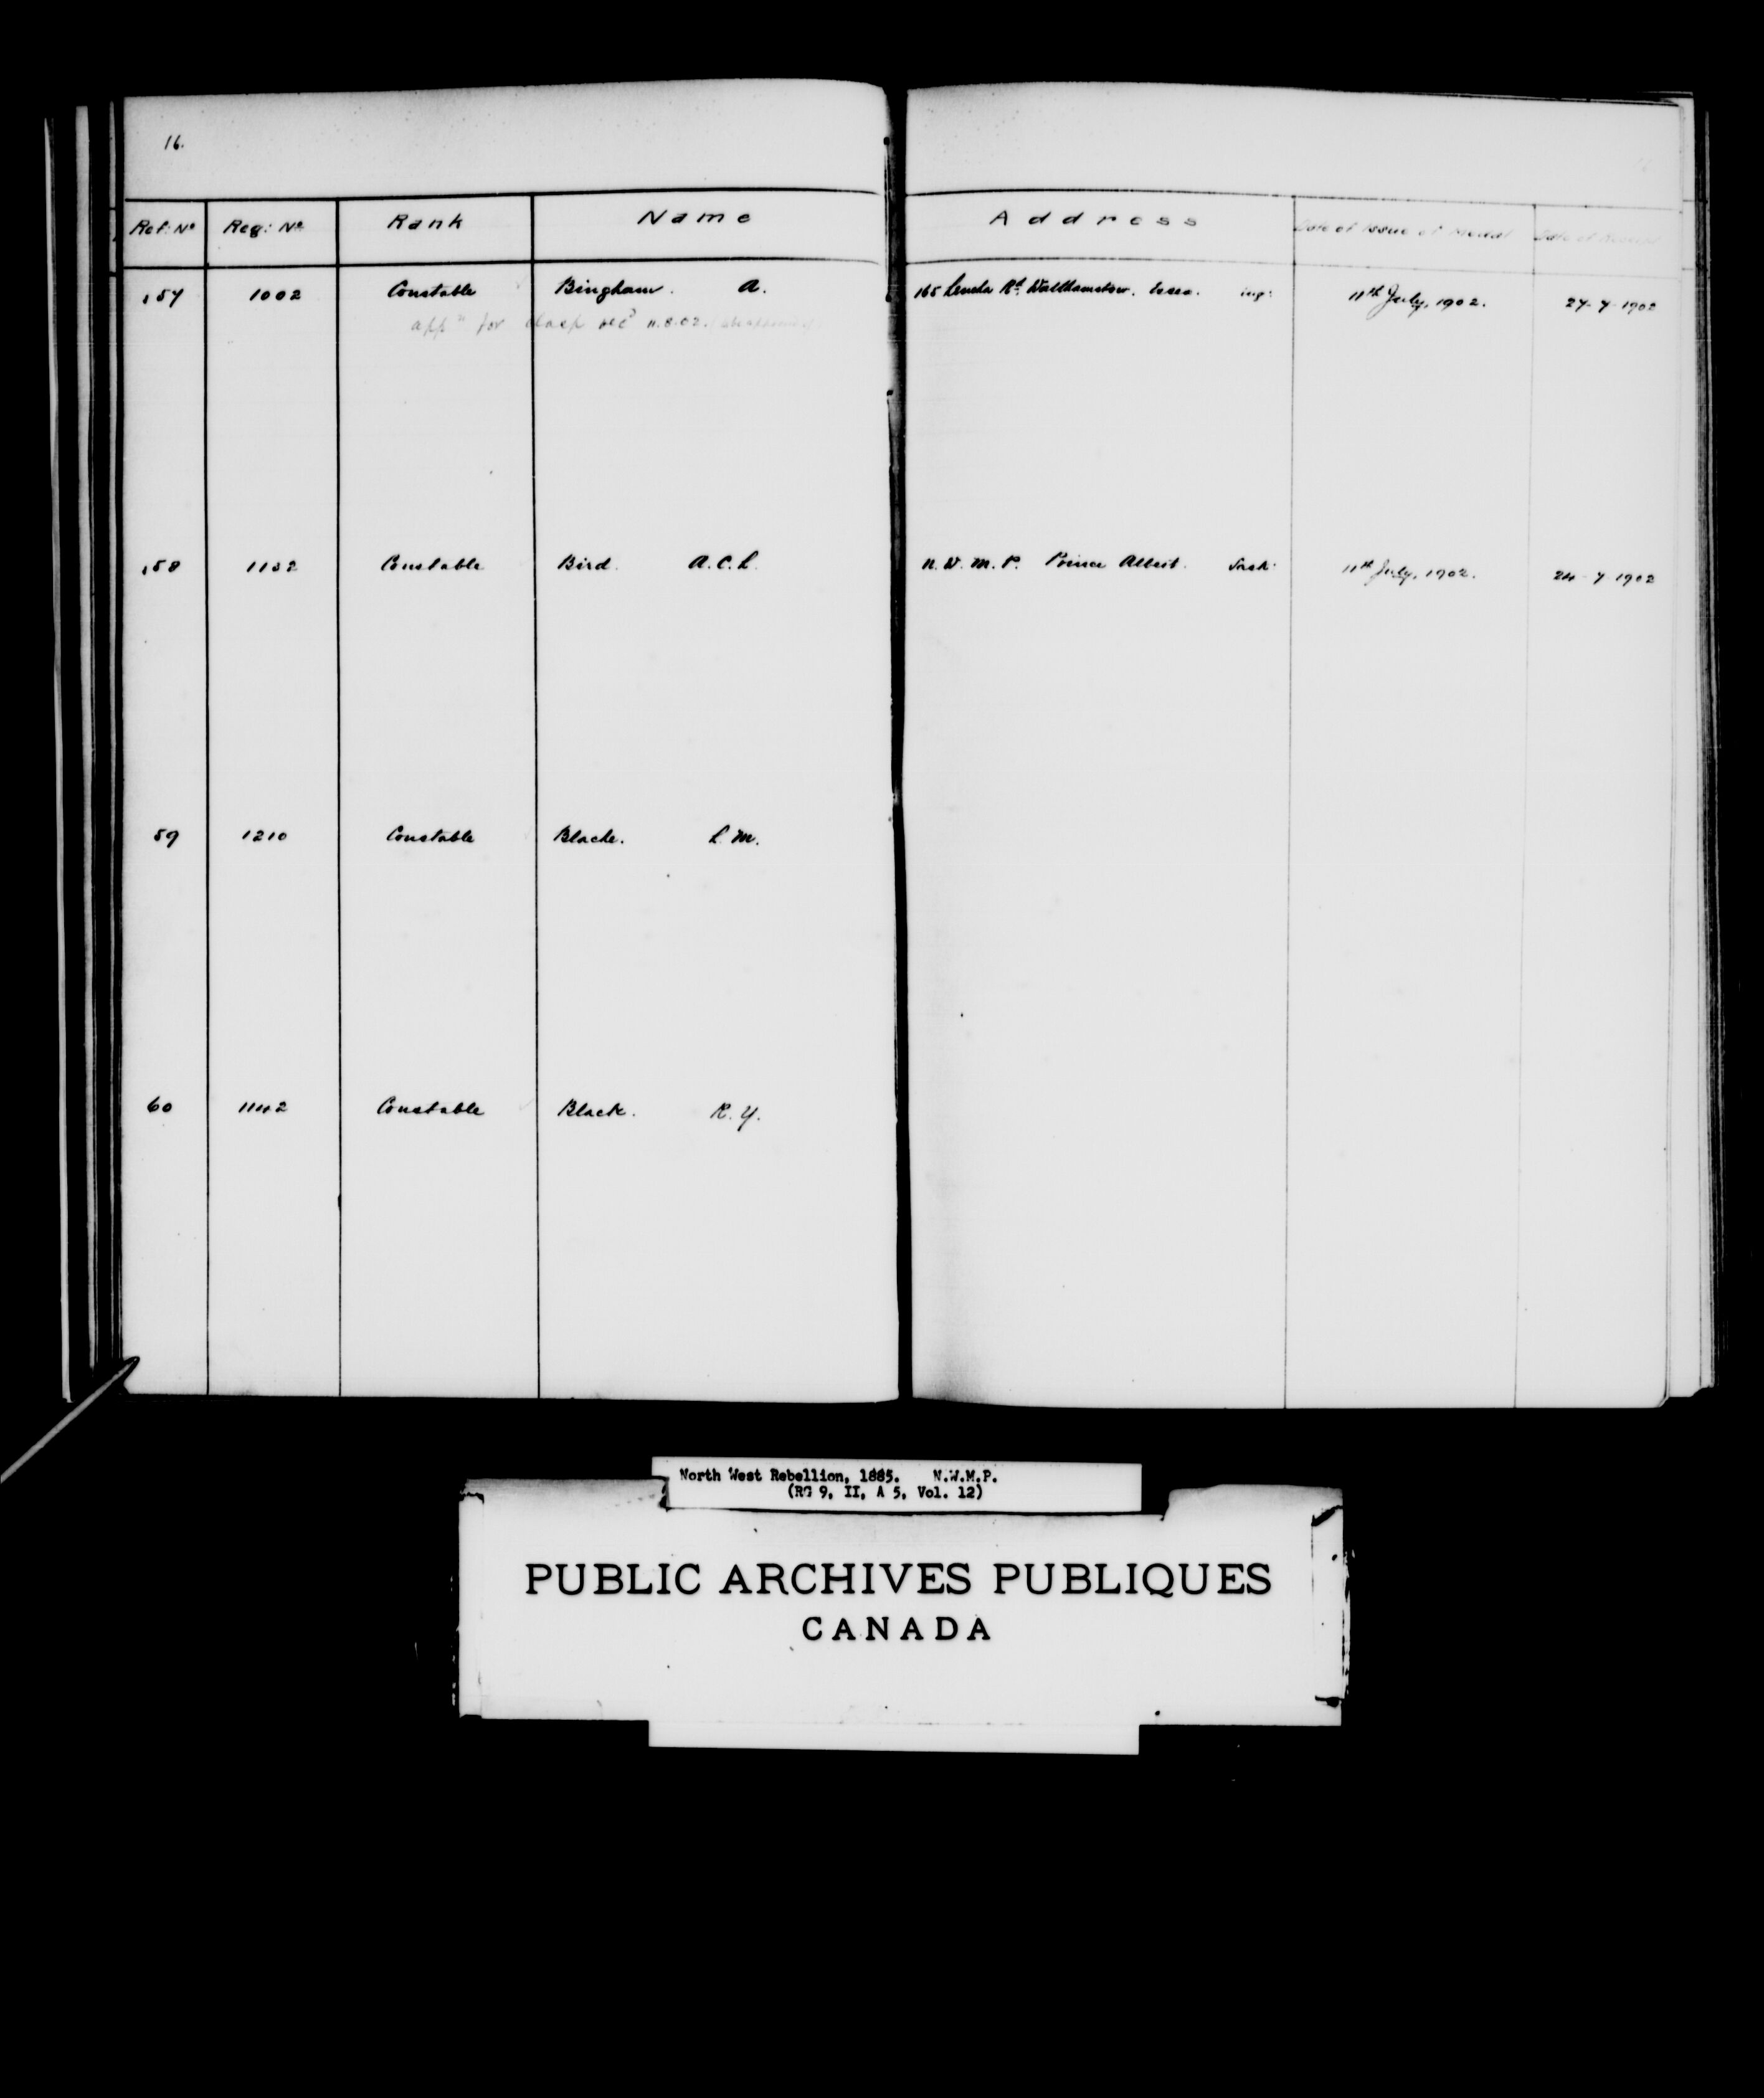 16.
Ref: No Reg: No Rank Name Address Date of Issue of Medal Date of Receipt
57 1002 Constable Bingham. A. 165 Rd. Walthamstow. Essex. Eng: 11th July, 1902. 27-7-1902
appn for clasp recd 11.8.02.
58 1132 Constable Bird. A.C.L. N.W.M.P. Prince Albert. Sask: 11th July, 1902. 24-7 1902
59 1210 Constable Blache. L.M.
60 1142 Constable Black. R.Y.
North West Rebellion, 1885. N.W.M.P.
(RG 9, II, A 5, Vol. 12)
PUBLIC ARCHIVES PUBLIQUES
CANADA